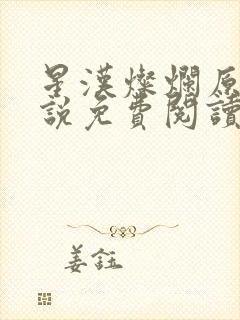 星漢燦爛原
說免費閱讀
姜鈺